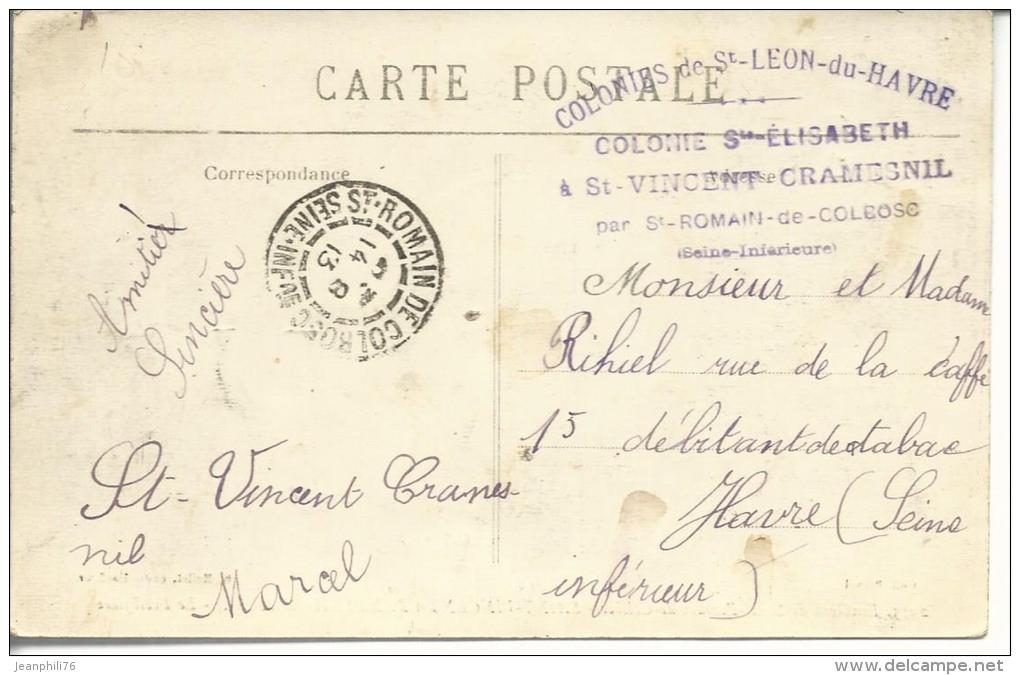 CARTE POSTALE
COLONIES de St-LEON-du-HAVRE
COLONIE Ste-ÉLISABETH
à St-VINCENT-CRAMESNIL
par St-ROMAIN-de-COLBOSC
(Seine-Inférieure)
Correspondance
Adresse
ST-ROMAIN DE COLBOSC
SEINE-INFRE
14
8
13
Amitiés
Sincère
St-Vincent Cranes-
nil
Marcel
Monsieur et Madam
Rihiel rue de la Caffe
15 débitant de tabac
Havre (Seine
inférieur)
jeanphili76
www.delcampe.net